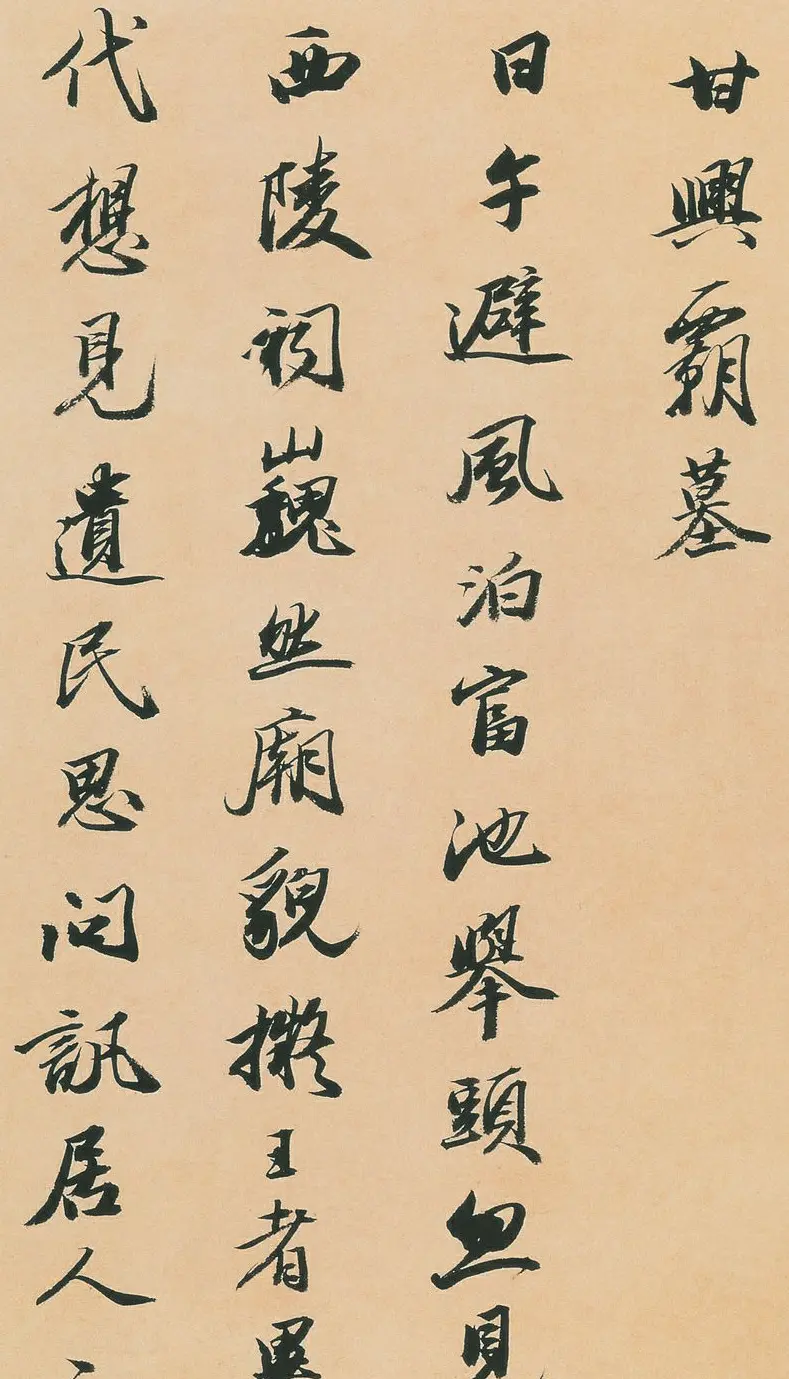 甘興霸墓
日午避風泊富池舉頭忽見
西陵祠巍然廟貌擬王者異
代想見遺民思問訊居人